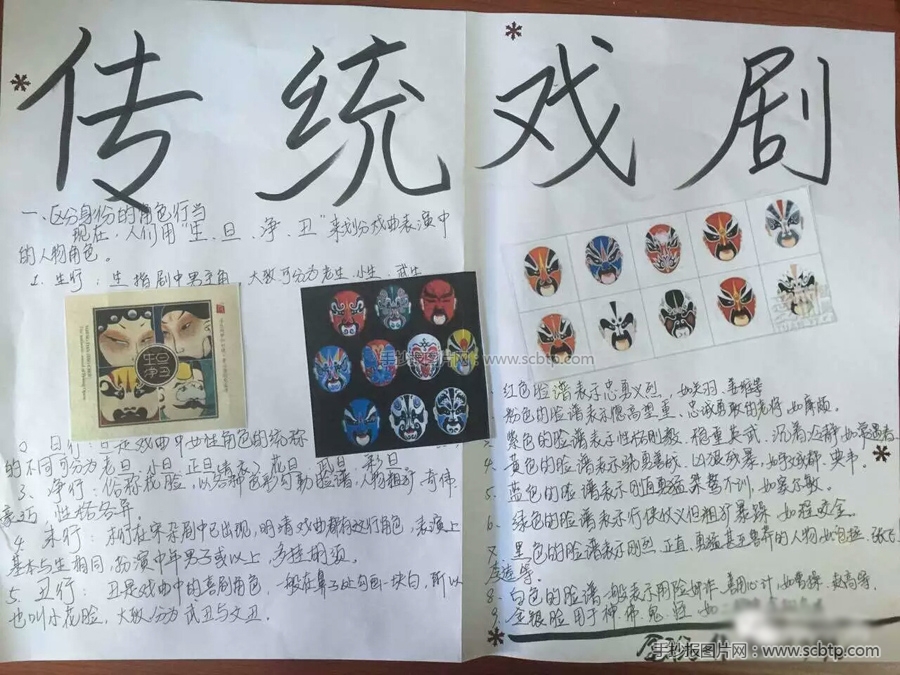 传统戏剧
一、区分身份的角色行当
现在，人们用“生、旦、净、丑”来划分戏曲表演中
的人物角色。
1、生行：生指剧中男主角，大致可分为老生、小生、武生
生旦
净丑
2、旦行：旦是戏曲中女性角色的统称
的不同可分为老旦、小旦、正旦、花旦、武旦、彩旦
3、净行：俗称花脸，以各种色彩勾勒脸谱，人物粗犷、奇伟、
豪迈，性格各异
4、末行：末行在宋杂剧中已出现，明清戏曲都有这行角色，表演上
基本与生相同，扮演中年男子或以上，多挂胡须
5、丑行：丑是戏曲中的喜剧角色，一般在鼻子处勾画一块白，所以
也叫小花脸，大致分为武丑与文丑。
红色的脸谱表示忠勇义烈，如关羽、姜维等
粉色的脸谱表示德高望重、忠诚勇敢的老将，如廉颇。
紫色的脸谱表示性格刚毅、稳重英武、沉着冷静，如常遇春
4、黄色的脸谱表示骁勇善战、凶狠残暴，如宇文成都、典韦。
5、蓝色的脸谱表示刚直勇猛、桀骜不驯，如窦尔敦。
6、绿色的脸谱表示行侠仗义但粗犷暴躁，如程咬金。
7、黑色的脸谱表示刚烈、正直、勇猛甚至鲁莽的人物，如包拯、张飞、
李逵等。
8、白色的脸谱一般表示阴险奸诈、善用心计，如曹操、赵高等。
9、金银脸用于神、佛、鬼、怪，如
手抄报图片网：www.scbtp.com
手抄报图片网：www.scbtp.com